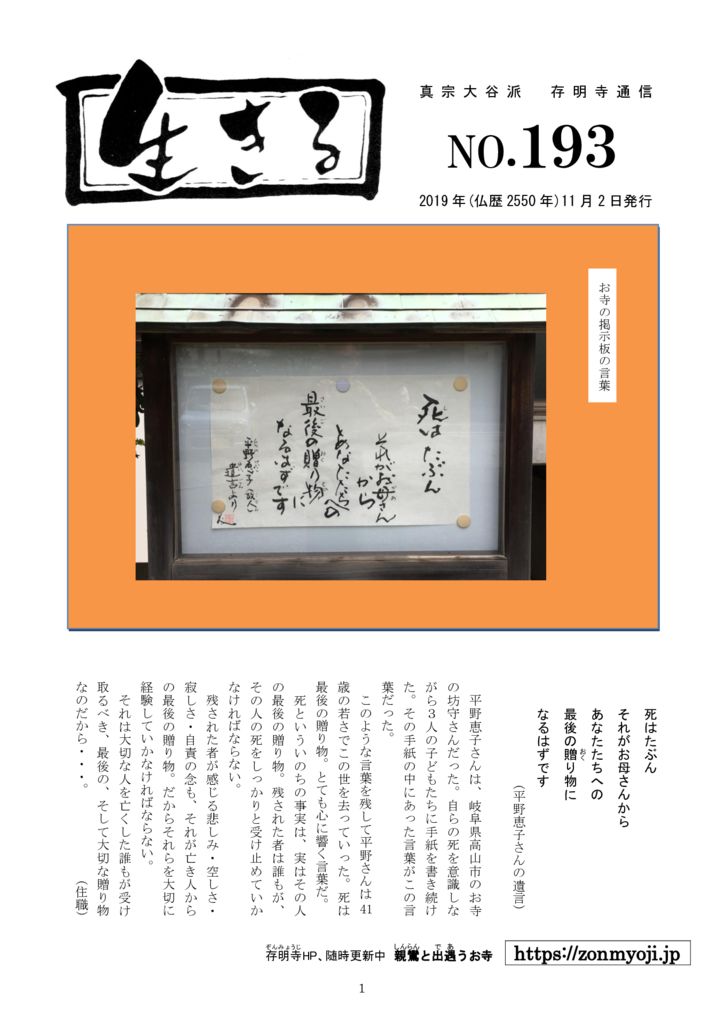 生きる
真宗大谷派　存明寺通信
NO.193
2019年(仏歴2550年)11月2日発行
お寺の掲示板の言葉
死はたぶん
それがお母さん
から
あなたたちへの
最後の贈り物
に
なるはずです
平野恵子(故人)
遺言より
死はたぶん
それがお母さんから
あなたたちへの
最後の贈り物に
なるはずです
(平野恵子さんの遺言)
平野恵子さんは、岐阜県高山市のお寺
の坊守さんだった。自らの死を意識しな
がら3人の子どもたちに手紙を書き続け
た。その手紙の中にあった言葉がこの言
葉だった。
このような言葉を残して平野さんは41
歳の若さでこの世を去っていった。死は
最後の贈り物。とても心に響く言葉だ。
死といういのちの事実は、実はその人
の最後の贈り物。残された者は誰もが、
その人の死をしっかりと受け止めていか
なければならない。
残された者が感じる悲しみ・空しさ・
寂しさ・自責の念も、それが亡き人から
の最後の贈り物。だからそれらを大切に
経験していかなければならない。
それは大切な人を亡くした誰もが受け
取るべき、最後の、そして大切な贈り物
なのだから・・・。
(住職)
存明寺HP、随時更新中　親鸞と出遇うお寺
https://zonmyoji.jp
1